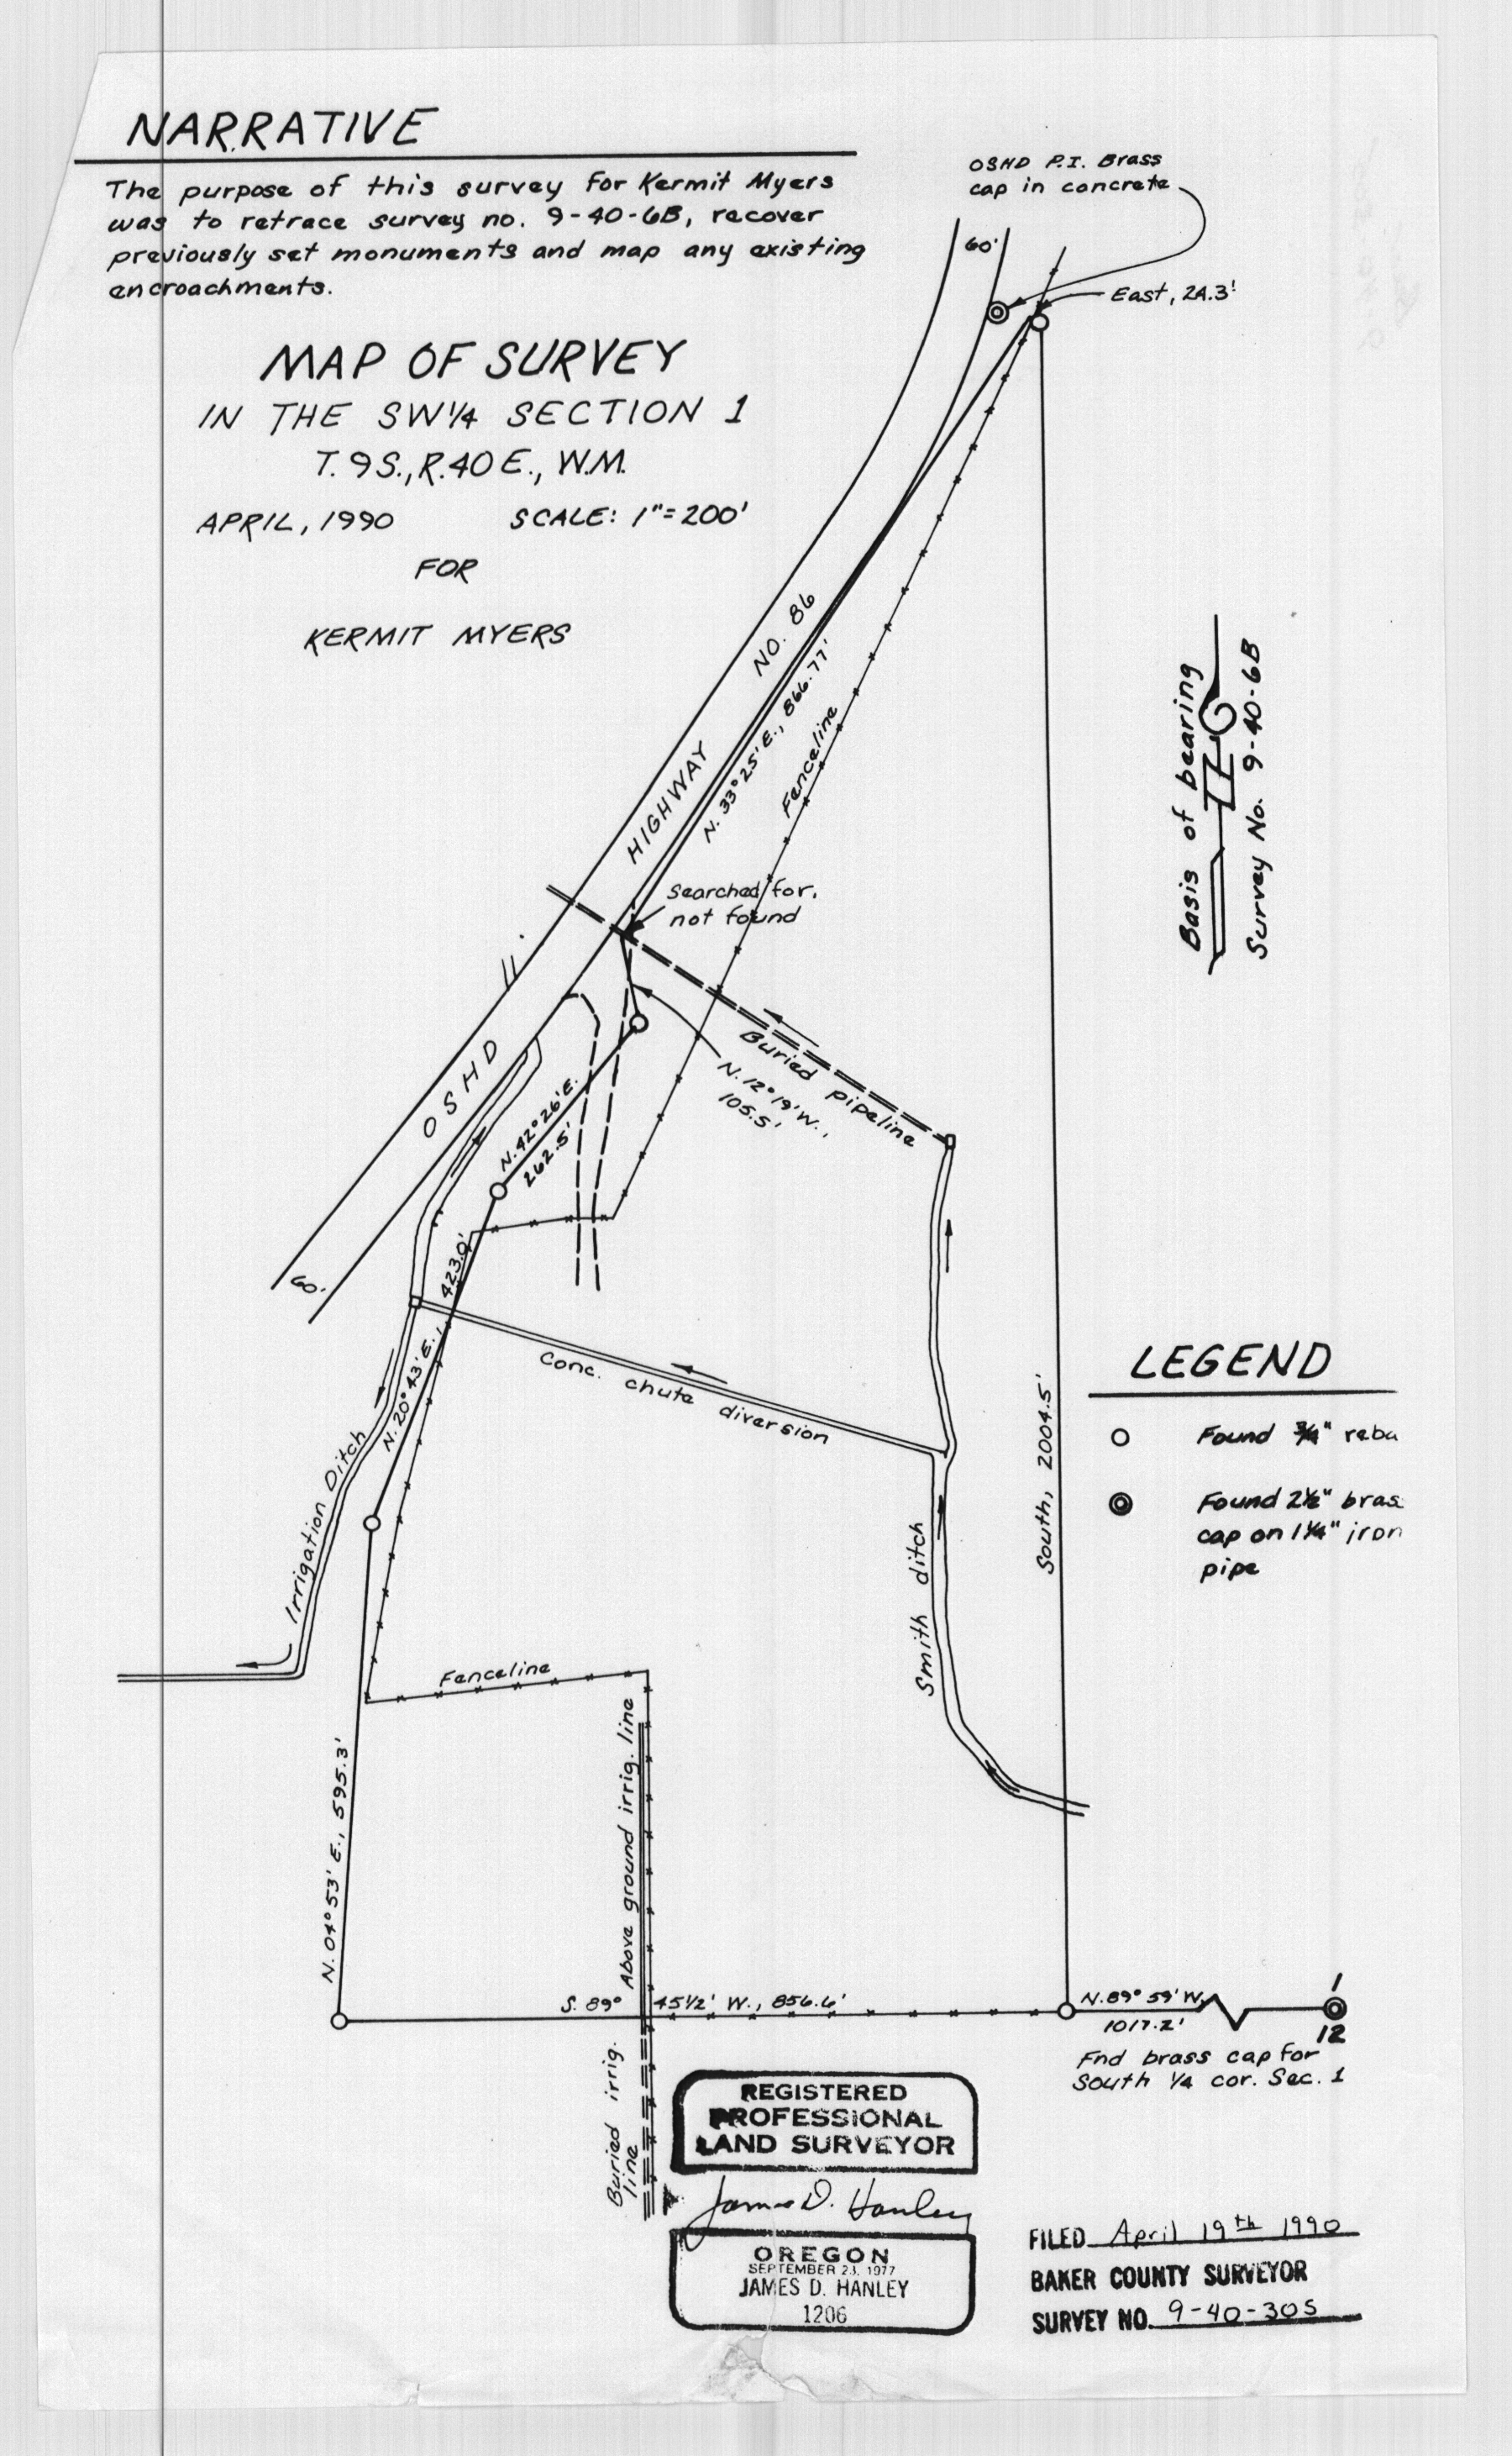 NARRATIVE
The purpose of this survey for Kermit Myers
was to retrace survey no. 9-40-6B, recover
previously set monuments and map any existing
encroachments.
MAP OF SURVEY
IN THE SW 1/4 SECTION 1
T. 9 S., R. 40 E., W.M.
APRIL, 1990 SCALE: 1" = 200'
FOR
KERMIT MYERS
OSHD P.I. Brass
cap in concrete
60'
East, 24.3'
OSHD HIGHWAY NO. 86
N. 33° 25' E., 866.77'
Fenceline
Searched for,
not found
Basis of bearing
Survey No. 9-40-6B
Buried pipeline
N. 12° 19' W.,
105.5'
N. 42° 26' E.
262.5'
60'
N. 20° 43' E., 423.0'
Conc. chute diversion
Irrigation Ditch
Smith ditch
South, 2004.5'
LEGEND
Found 3/4" reba
Found 2 1/2" bras
cap on 1 1/4" iron
pipe
Fenceline
N. 04° 53' E., 595.3'
Above ground irrig. line
S. 89° 45 1/2' W., 856.6'
N. 89° 59' W.
1017.2'
1
12
Fnd brass cap for
South 1/4 cor. Sec. 1
Buried irrig.
line
REGISTERED
PROFESSIONAL
LAND SURVEYOR
James D. Hanley
OREGON
SEPTEMBER 23, 1977
JAMES D. HANLEY
1206
FILED April 19th 1990
BAKER COUNTY SURVEYOR
SURVEY NO. 9-40-30S